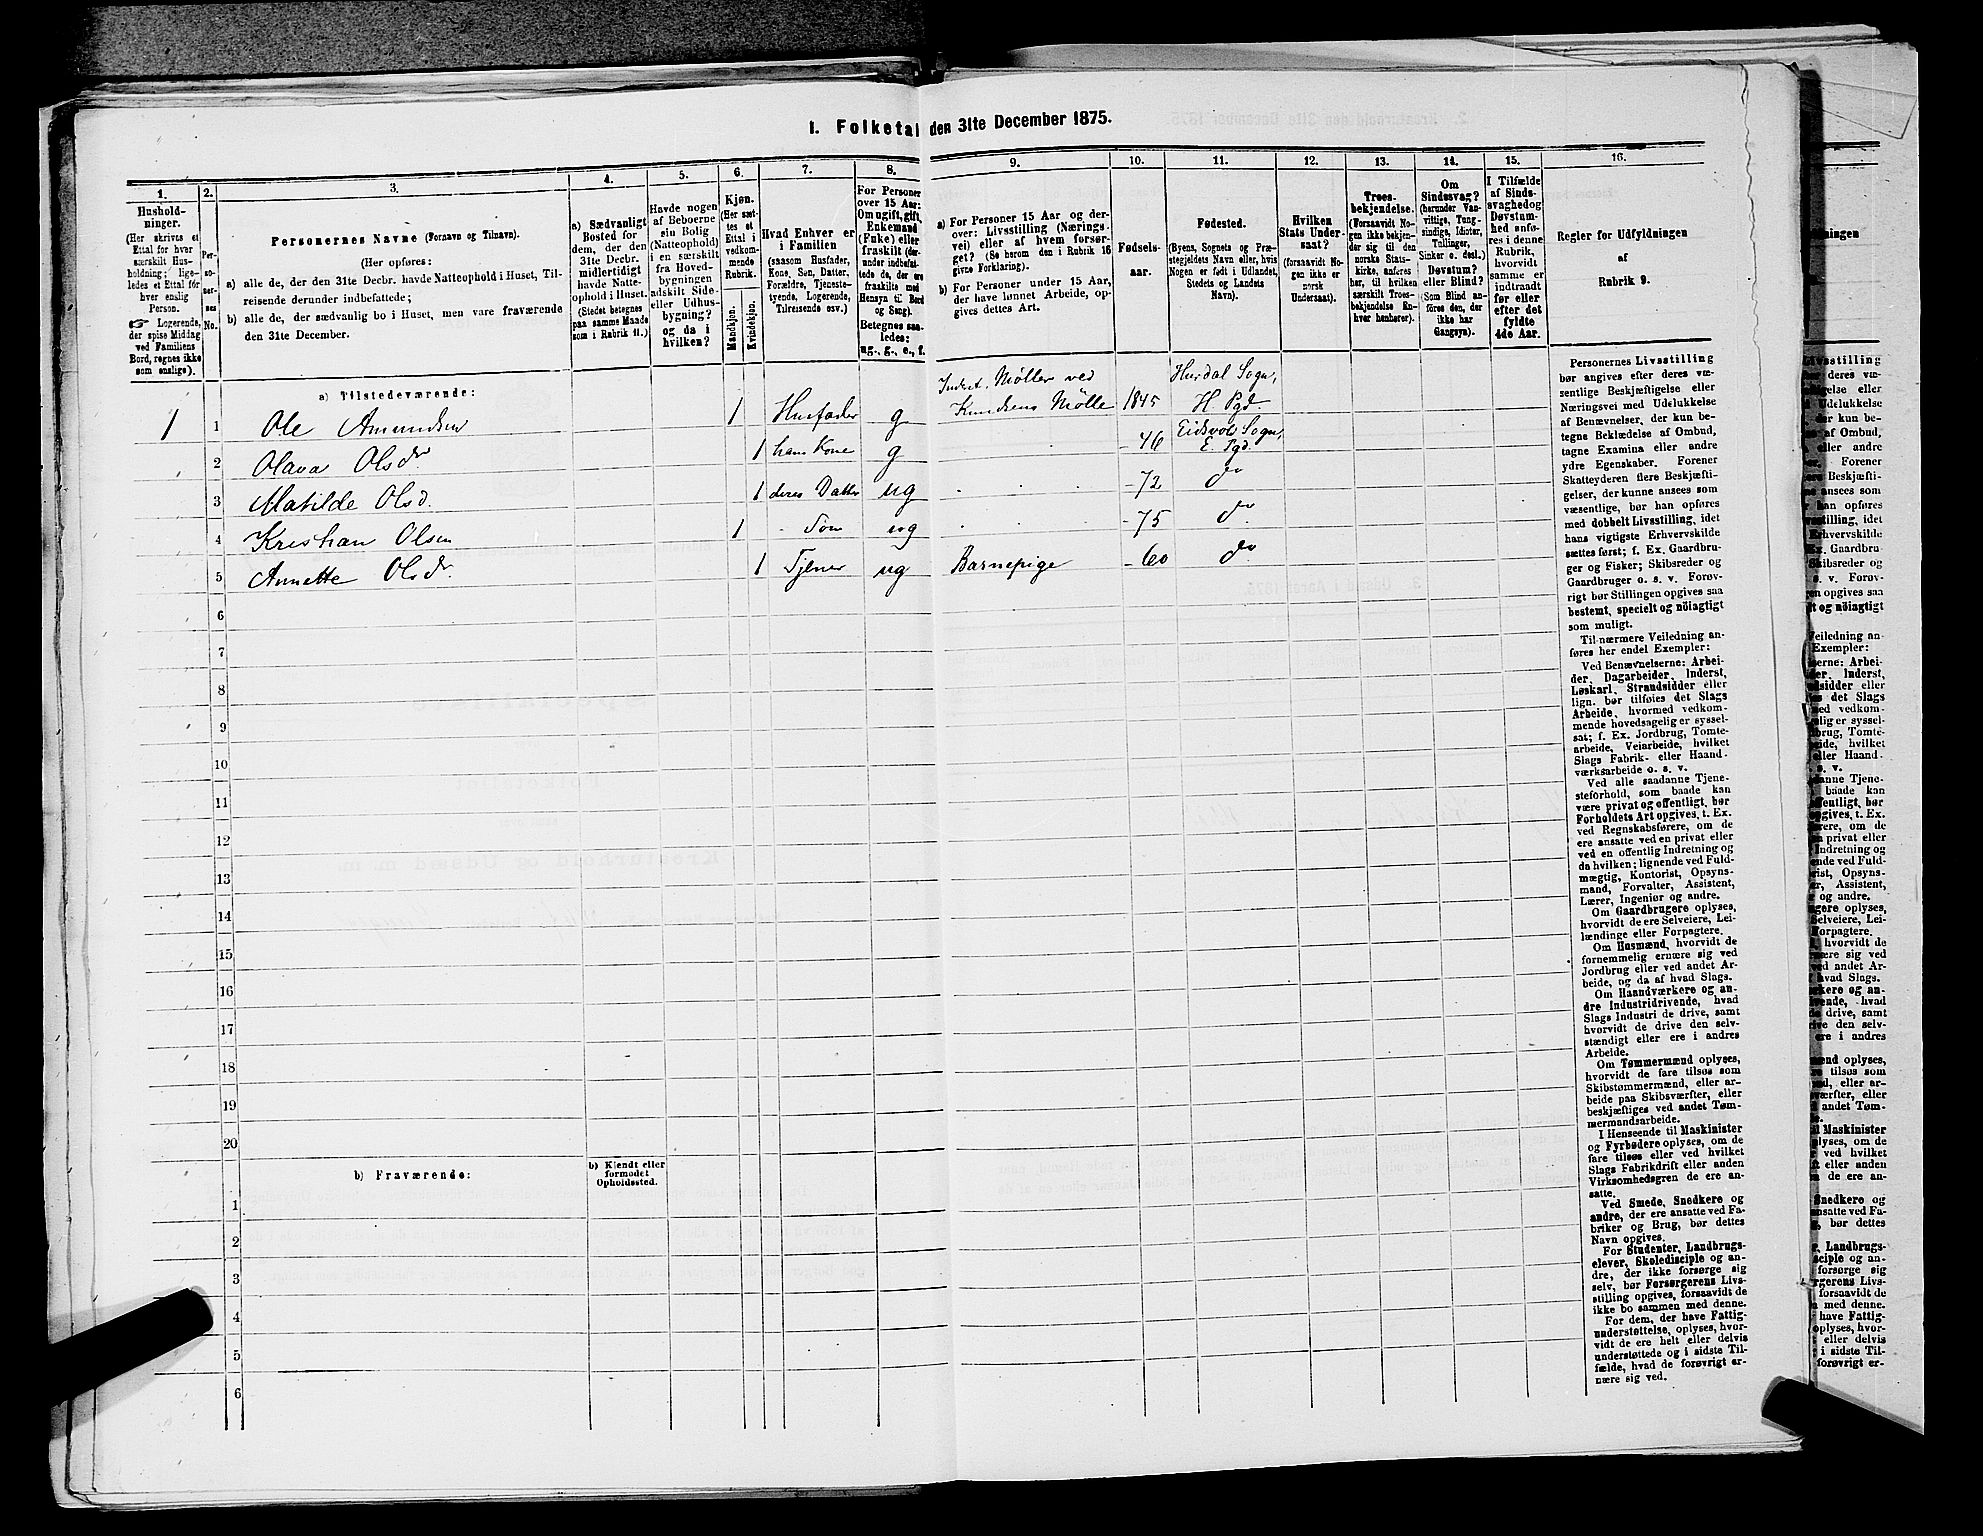 1. Folketal den 31te December 1875.
1.
Hushold-
ninger.
(Her skrives et
Ettal for hver
særskilt Hus-
holdning; lige-
ledes et Ettal for
hver enslig
Person.
☞ Logerende,
der spise Middag
ved Familiens
Bord, regnes ikke
som enslige).
2.
Per-
so-
ner-
nes
No.
3.
Personernes Navne (Fornavn og Tilnavn).
(Her opføres:
a) alle de, der den 31te Decbr. havde Natteophold i Huset, Til-
reisende derunder indbefattede;
b) alle de, der sædvanlig bo i Huset, men vare fraværende
den 31te December.
4.
a) Sædvanligt
Bosted for
dem, der den
31te Decbr.
midlertidigt
havde Natte-
ophold i Huset.
(Stedet betegnes
paa samme Maade
som i Rubrik 11.)
5.
Havde nogen
af Beboerne
sin Bolig
(Natteophold)
i en særskilt
fra Hoved-
bygningen
adskilt Side-
eller Udhus-
bygning?
og da i
hvilken?
6.
Kjøn.
(Her sæt-
tes et
Ettal i
vedkom-
mende
Rubrik.
Mandkjøn.
Kvindekjøn.
7.
Hvad Enhver er
i Familien
(saasom Husfader,
Kone, Søn, Datter,
Forældre, Tjeneste-
tyende, Logerende,
Tilreisende osv.)
8.
For Personer
over 15 Aar:
Om ugift, gift,
Enkemand
(Enke) eller
fraskilt (der-
under indbefat-
tede de, der ere
fraskilte med
Hensyn til Bord
og Seng).
Betegnes saa-
ledes:
ug., g., e., f.
9.
a) For Personer 15 Aar og der-
over: Livsstilling (Nærings-
vei) eller af hvem forsør-
get? (Se herom den i Rubrik 16
givne Forklaring).
b) For Personer under 15 Aar,
der have lønnet Arbeide, op-
gives dettes Art.
10.
Fødsels-
aar.
11.
Fødested.
(Byens, Sognets og Præ-
stegjeldets Navn eller, hvis
Nogen er født i Udlandet,
Stedets og Landets
Navn).
12.
Hvilken
Stats Under-
saat?
(forsaavidt No-
gen ikke er
norsk
Undersaat).
13.
Troes-
bekjendelse.
(Forsaavidt No-
gen ikke bekjen-
der sig til den
norske Stats-
kirke, anføres
her, til hvilken
særskilt Troes-
bekjendelse En-
hver henhører).
14.
Om
Sindssvag?
(herunder Van-
vittige, Tung-
sindige, Idioter,
Tullinger,
Sinker o. desl.)
Døvstum?
eller Blind?
(Som Blind an-
føres den, der
ikke har
Gangsyn).
15.
I Tilfælde
af Sinds-
svaghed og
Døvstum-
hed anfø-
res i denne
Rubrik,
hvorvidt
samme er
indtraadt
før eller
efter det
fyldte
4de Aar.
16.
Regler for Udfyldningen
af
Rubrik 9.
a) Tilstedeværende:
1 1 Ole Amundsen 1 Husfader g Inderst. Møller ved Knudsens Mølle 1845 Hurdal Sogn, H Pgd.
2 Olava Olsdr 1 hans Kone g - 46 Eidsvol Sogn, E. Pgd.
3 Matilde Olsd. 1 deres Datter ug - 72 do
4 Kristian Olsen 1 - Søn ug - 75 do
5 Annette Olsdr. 1 Tjener ug Barnepige - 60 do
6
7
8
9
10
11
12
13
14
15
16
17
18
19
20
b) Fraværende:
b) Kjendt eller
formodet
Opholdssted.
1
2
3
4
5
6
Personernes Livsstilling
bør angives efter deres væ-
sentlige Beskjæftigelse eller
Næringsvei med Udelukkelse
af Benævnelser, der kun be-
tegne Beklædelse af Ombud,
tagne Examina eller andre
ydre Egenskaber. Forener
Skatteyderen flere Beskjæfti-
gelser, der kunne ansees som
væsentlige, bør han opføres
med dobbelt Livsstilling, idet
hans vigtigste Erhvervskilde
sættes først; f. Ex. Gaardbru-
ger og Fisker; Skibsreder og
Gaardbruger o. s. v. Forøv-
rigt bør Stillingen opgives saa
bestemt, specielt og nöiagtigt
som muligt.
Til nærmere Veiledning an-
føres her endel Exempler:
Ved Benævnelserne: Arbei-
der, Dagarbeider, Inderst,
Løskarl, Strandsidder eller
lign. bør tilføies det Slags
Arbeide, hvormed vedkom-
mende hovedsagelig er syssel-
sat; f. Ex. Jordbrug, Tomte-
arbeide, Veiarbeide, hvilket
Slags Fabrik- eller Haand-
værksarbeide o. s. v.
Ved alle saadanne Tjene-
steforhold, som baade kan
være privat og offentligt, bør
Forholdets Art opgives, t. Ex.
ved Regnskabsførere, om de
ere ansatte ved en privat eller
ved en offentlig Indretning og
da hvilken; lignende ved Fuld-
mægtig, Kontorist, Opsyns-
mand, Forvalter, Assistent,
Lærer, Ingeniør og andre.
Om Gaardbrugere oplyses,
hvorvidt de ere Selveiere, Lei-
lændinge eller Forpagtere.
Om Husmænd, hvorvidt de
fornemmelig ernære sig ved
Jordbrug eller ved andet Ar-
beide, og da af hvad Slags.
Om Haandværkere og an-
dre Industridrivende, hvad
Slags Industri de drive, samt
hvorvidt de drive den selv-
stændigt eller ere i andres
Arbeide.
Om Tømmermænd oplyses,
hvorvidt de fare tilsøs som
Skibstømmermænd, eller ar-
beide paa Skibsværfter, eller
beskjæftiges ved andet Tøm-
mermandsarbeide.
I Henseende til Maskinister
og Fyrbødere oplyses, om de
fare tilsøs eller ved hvilket
Slags Fabrikdrift eller anden
Virksomhedsgren de ere an-
satte.
Ved Smede, Snedkere og
andre, der ere ansatte ved Fa-
briker og Brug, bør dettes
Navn opgives.
For Studenter, Landbrugs-
elever, Skoledisciple og an-
dre, der ikke forsørge sig
selv, bør Forsørgerens Livs-
stilling opgives, forsaavidt de
ikke bo sammen med denne.
For dem, der have Fattig-
understøttelse, oplyses, hvor-
vidt de ere helt eller delvis
understøttede og i sidste Til-
fælde, hvad de forøvrigt er-
nære sig ved.